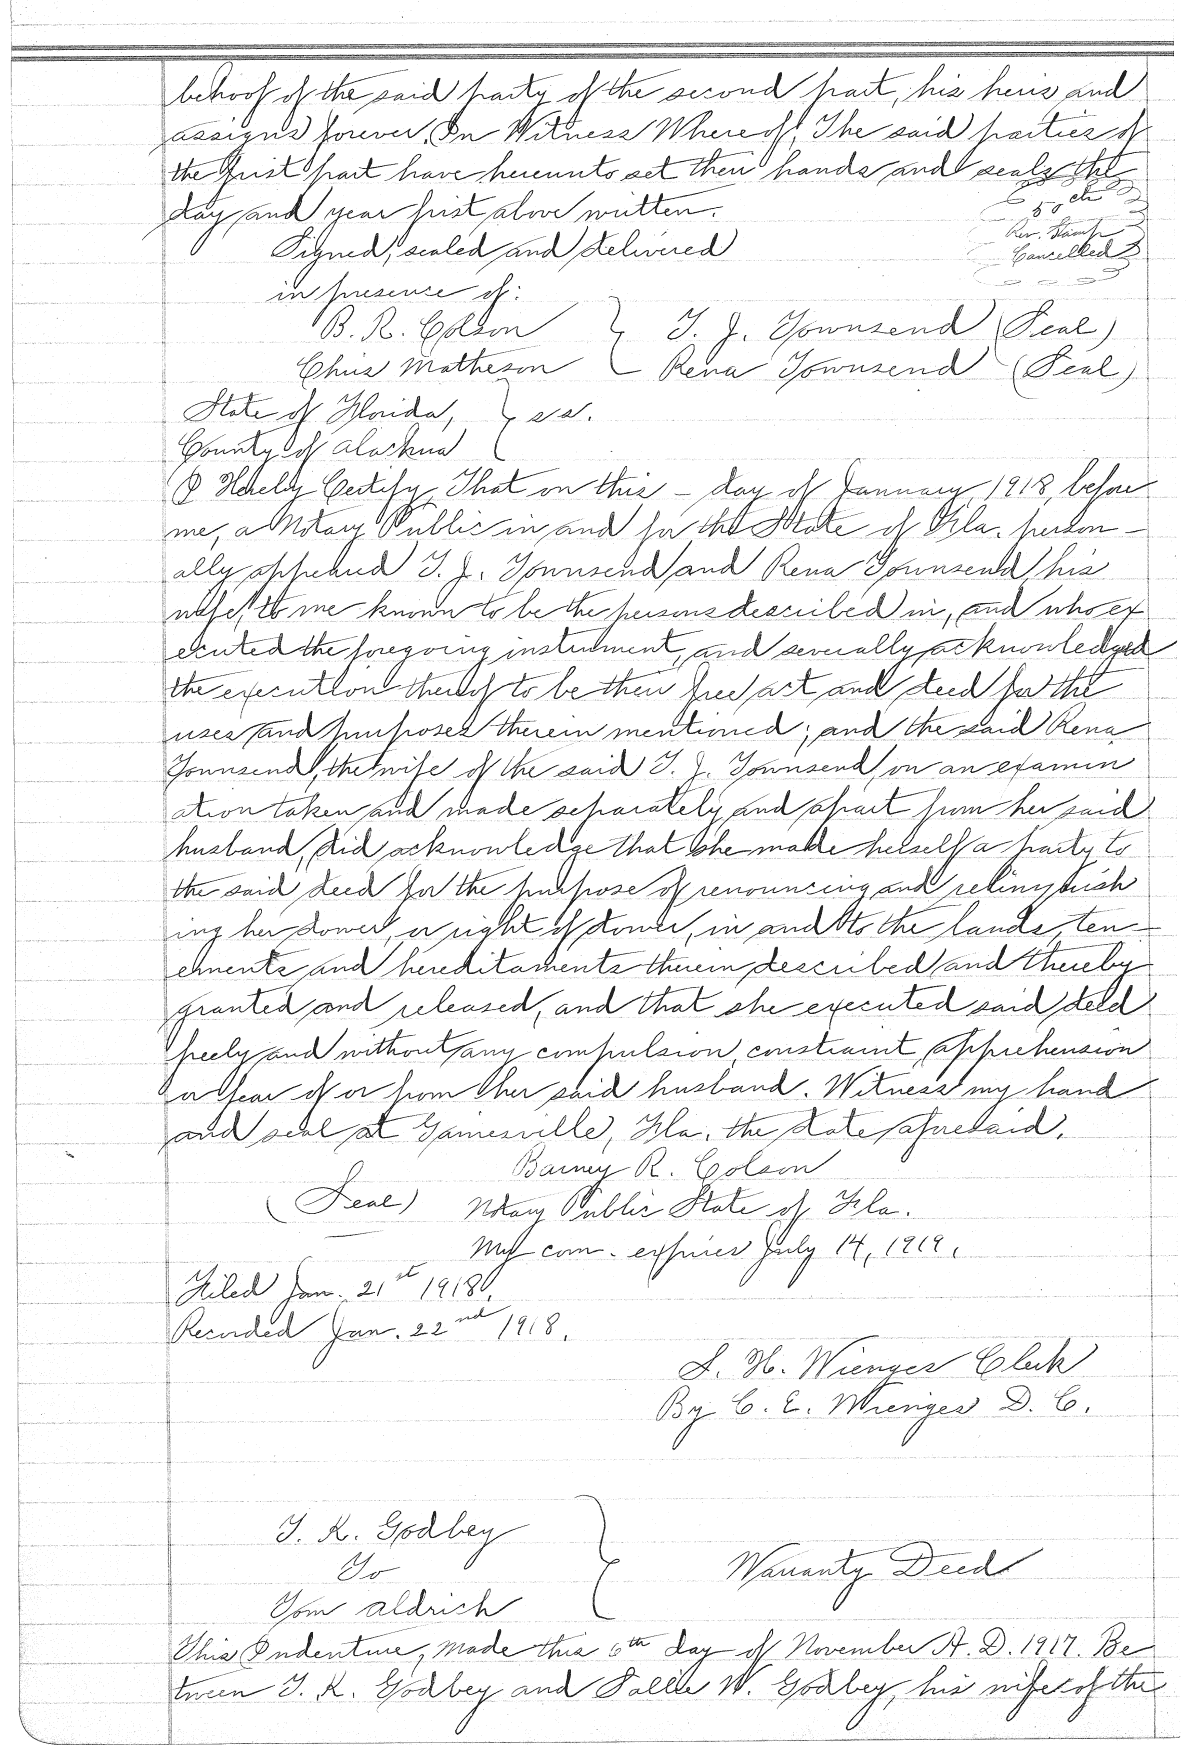 behoof of the said party of the second part, his heirs and
assigns forever. In Witness Whereof, The said parties of
the first part have hereunto set their hands and seals the
day and year first above written.
50 cts
Rev. Stamp
Cancelled
Signed, sealed and delivered
in presence of:
B. R. Colson } T. J. Townsend (Seal)
Chris Matheson Rena Townsend (Seal)
State of Florida, } ss.
County of Alachua
I Hereby Certify, That on this – day of January, 1918, before
me, a Notary Public in and for the State of Fla. person-
ally appeared T. J. Townsend and Rena Townsend, his
wife, to me known to be the persons described in, and who ex
ecuted the foregoing instrument, and severally acknowledged
the execution thereof to be their free act and deed for the
uses and purposes therein mentioned; and the said Rena
Townsend, the wife of the said T. J. Townsend, on an examin
ation taken and made separately and apart from her said
husband, did acknowledge that she made herself a party to
the said deed for the purpose of renouncing and relinquish
ing her dower, or right of dower, in and to the lands, ten-
ements and hereditaments therein described and thereby
granted and released, and that she executed said deed
freely and without any compulsion, constraint, apprehension
or fear of or from her said husband. Witness my hand
and seal at Gainesville, Fla. the date aforesaid.
Barney R. Colson
(Seal) Notary Public State of Fla.
My com. expires July 14, 1919.
Filed Jan. 21st 1918.
Recorded Jan. 22nd 1918.
S. H. Wienges Clerk
By C. E. Wienges D. C.
T. K. Godbey
To } Warranty Deed
Tom Aldrich
This Indenture, Made this 6th day of November A. D. 1917. Be
tween T. K. Godbey and Sallie W. Godbey, his wife of the